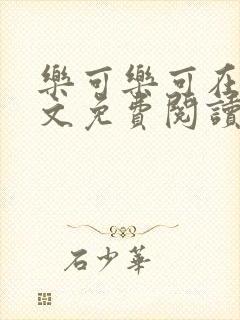 樂可樂可在
文免費閱讀
石少華